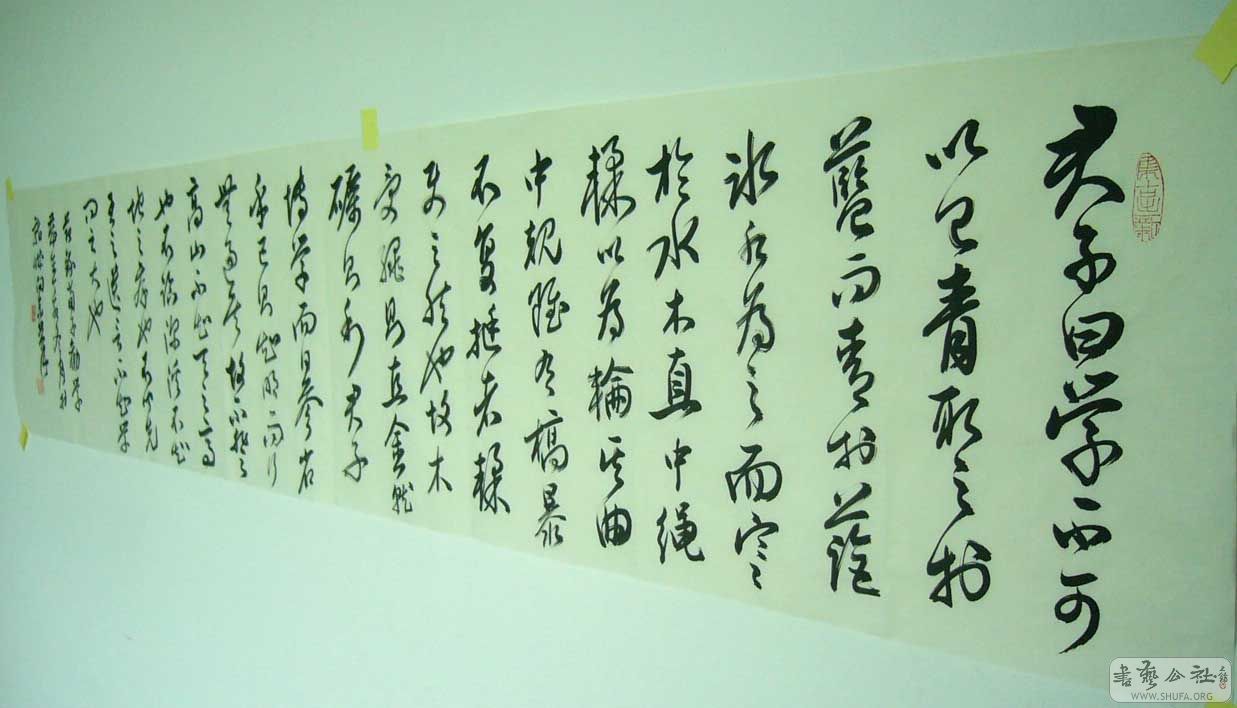 君子曰学不可
以已青取之於
蓝而青於蓝
冰水为之而寒
於水木直中绳
輮以为轮其曲
中规虽有槁暴
不复挺者輮
使之然也故木
受绳则直金就
砺则利君子
博学而日参省
乎己则知明而行
无过矣故不登
高山不知天之高
也不临深溪不知
地之厚也不闻先
王之遗言不知学
问之大也
荀子劝学
書藝公社
WWW.SHUFA.ORG